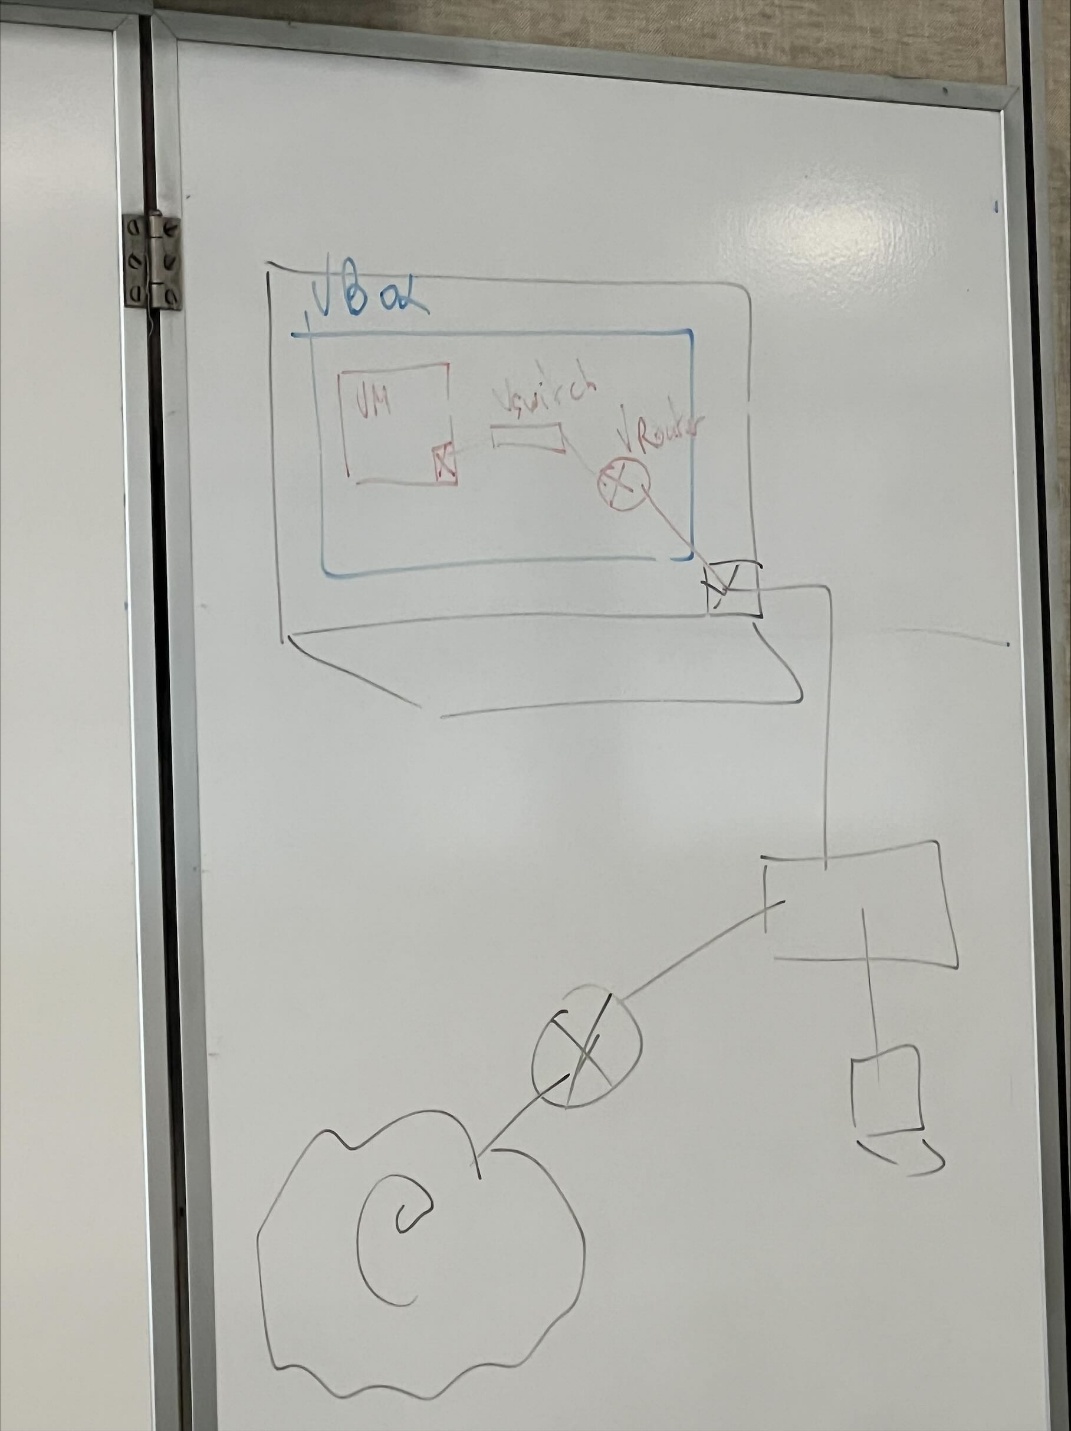 VBox
VM
Vswitch
VRouter
e